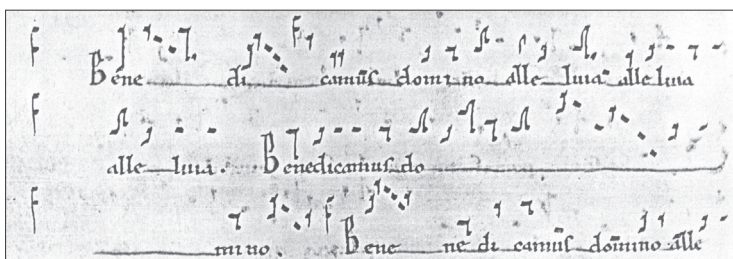 Bene di camus domino alle luia alleluia
alle luia. Benedicamus do
mino. Bene ne di camus domino alle